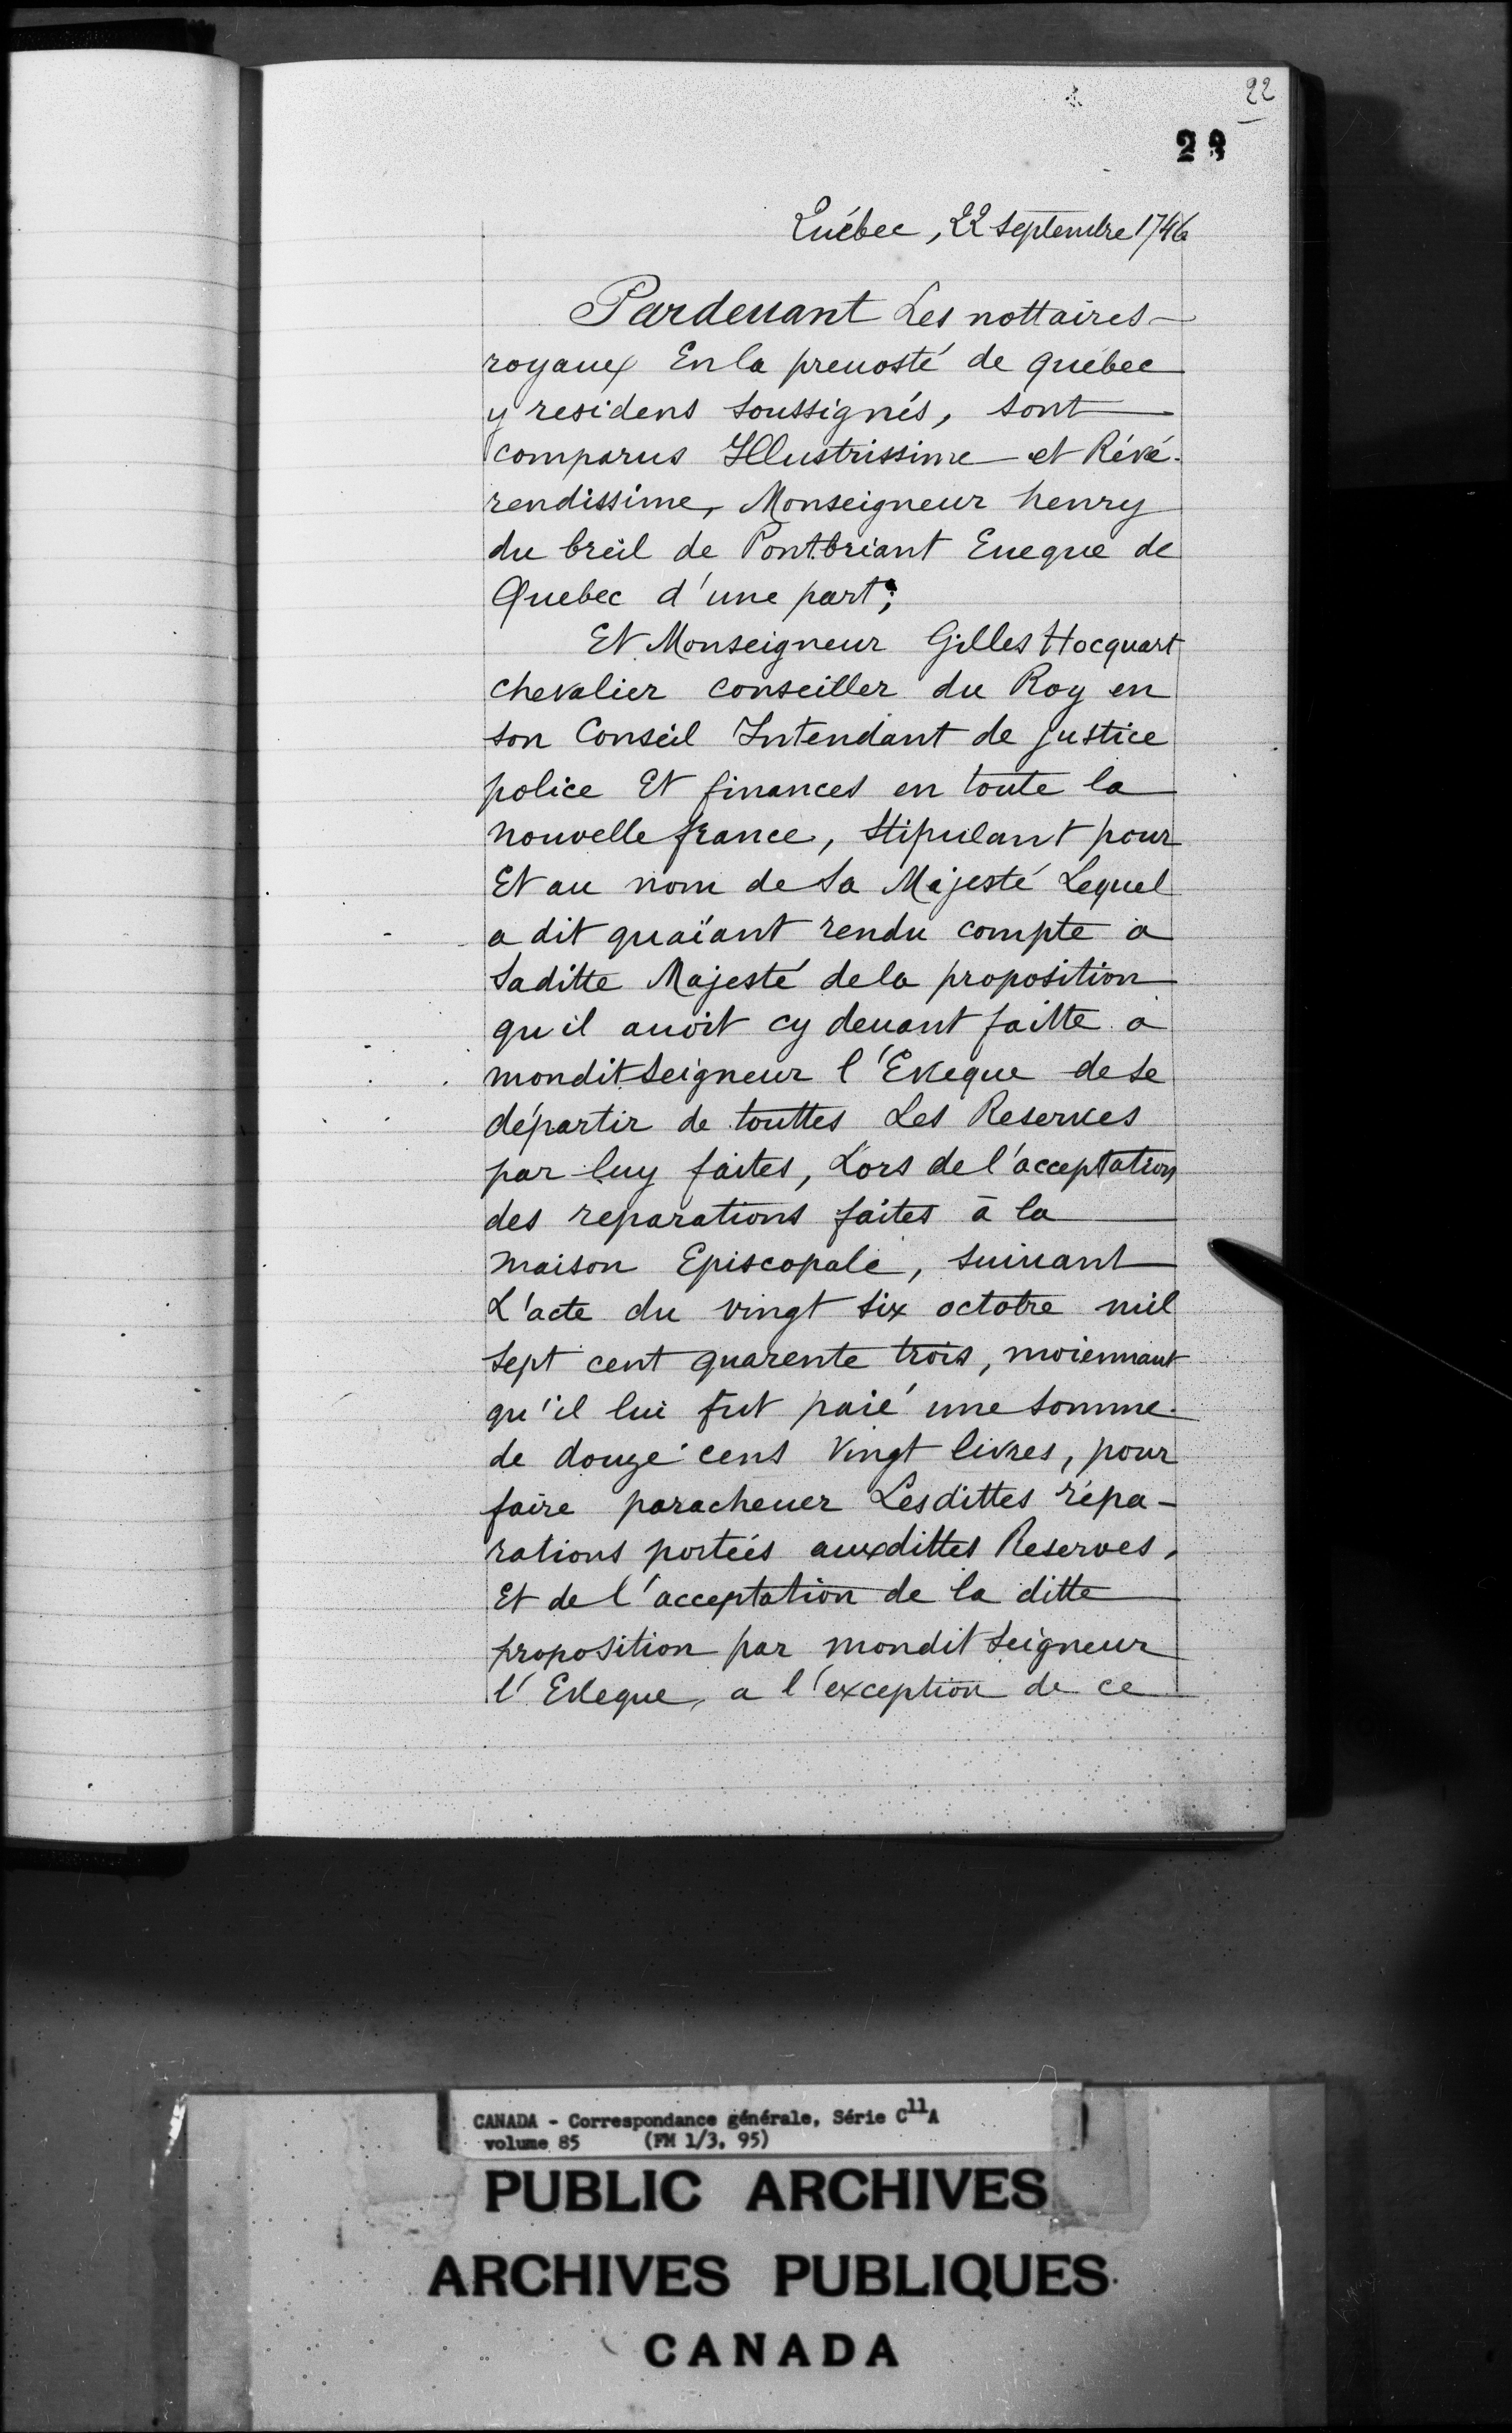 22
29
Québec, 22 septembre 1746
Pardeuant Les nottaires
royaux En la preuosté de québec
y residens soussignés, sont
comparus Illustrissime et Révé-
rendissime, Monseigneur henry
du breil de Pontbriant Eueque de
Quebec d'une part;
Et Monseigneur Gilles Hocquart
chevalier conseiller du Roy en
son Conseil Intendant de justice
police Et finances en toute la
nouvelle france, stipulant pour
Et au nom de sa Majesté Lequel
a dit quaïant rendu compte a
saditte Majesté de la proposition
qu'il auoit cy deuant faitte a
mondit seigneur l'Eveque de se
départir de touttes Les Reserves
par luy faites, Lors de l'acceptation
des reparations faites à la
maison Episcopale, suiuant
L'acte du vingt six octobre mil
sept cent quarente trois, moiennant
qu'il lui fut païé une somme
de douze cens vingt livres, pour
faire paracheuer Lesdittes répa-
rations portées auxdittes Reserves,
Et de l'acceptation de la ditte
proposition par mondit seigneur
l'Eveque, a l'exception de ce
CANADA - Correspondance générale, Série C11A
volume 85 (FM 1/3, 95)
PUBLIC ARCHIVES
ARCHIVES PUBLIQUES
CANADA